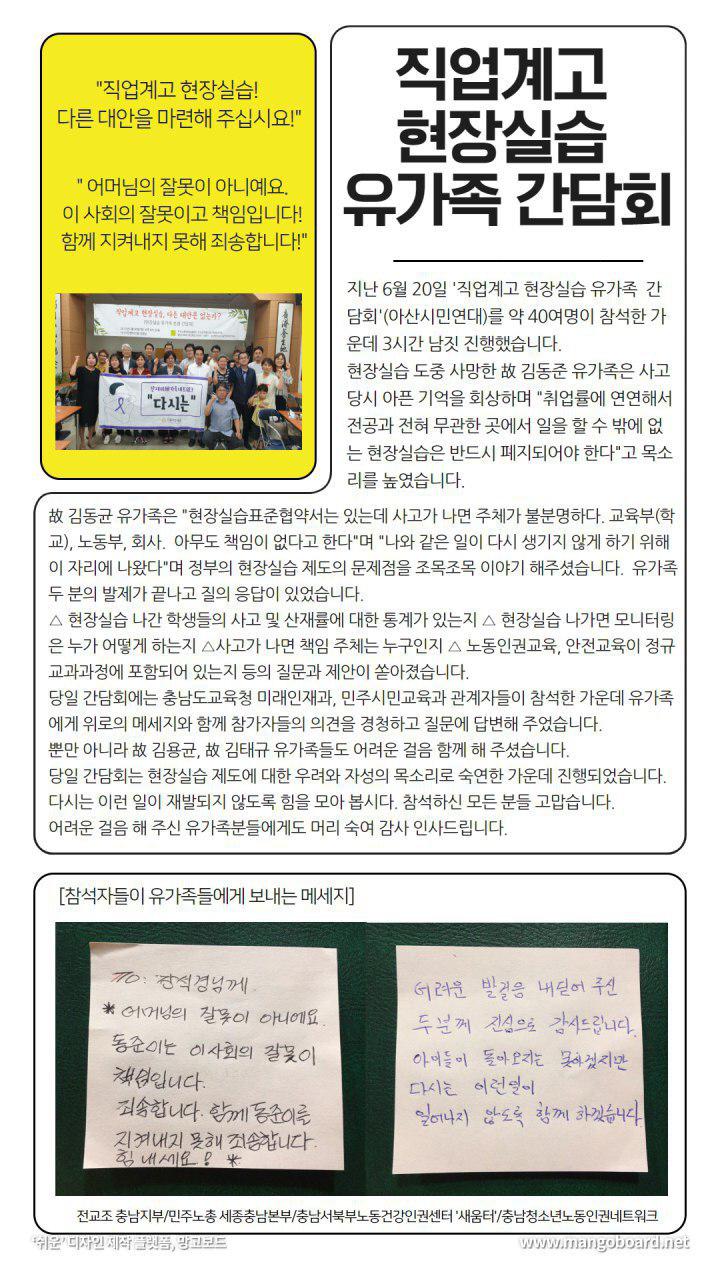 "직업계고 현장실습!
다른 대안을 마련해 주십시요!"
" 어머님의 잘못이 아니예요.
이 사회의 잘못이고 책임입니다!
함께 지켜내지 못해 죄송합니다!"
직업계고 현장실습, 다른 대안은 없는가?
"다시는"
직업계고
현장실습
유가족 간담회
지난 6월 20일 '직업계고 현장실습 유가족 간
담회'(아산시민연대)를 약 40여명이 참석한 가
운데 3시간 남짓 진행했습니다.
현장실습 도중 사망한 故 김동준 유가족은 사고
당시 아픈 기억을 회상하며 "취업률에 연연해서
전공과 전혀 무관한 곳에서 일을 할 수 밖에 없
는 현장실습은 반드시 폐지되어야 한다"고 목소
리를 높였습니다.
故 김동균 유가족은 "현장실습표준협약서는 있는데 사고가 나면 주체가 불분명하다. 교육부(학
교), 노동부, 회사. 아무도 책임이 없다고 한다"며 "나와 같은 일이 다시 생기지 않게 하기 위해
이 자리에 나왔다"며 정부의 현장실습 제도의 문제점을 조목조목 이야기 해주셨습니다. 유가족
두 분의 발제가 끝나고 질의 응답이 있었습니다.
△ 현장실습 나간 학생들의 사고 및 산재률에 대한 통계가 있는지 △ 현장실습 나가면 모니터링
은 누가 어떻게 하는지 △사고가 나면 책임 주체는 누구인지 △ 노동인권교육, 안전교육이 정규
교과과정에 포함되어 있는지 등의 질문과 제안이 쏟아졌습니다.
당일 간담회에는 충남도교육청 미래인재과, 민주시민교육과 관계자들이 참석한 가운데 유가족
에게 위로의 메세지와 함께 참가자들의 의견을 경청하고 질문에 답변해 주었습니다.
뿐만 아니라 故 김용균, 故 김태규 유가족들도 어려운 걸음 함께 해 주셨습니다.
당일 간담회는 현장실습 제도에 대한 우려와 자성의 목소리로 숙연한 가운데 진행되었습니다.
다시는 이런 일이 재발되지 않도록 힘을 모아 봅시다. 참석하신 모든 분들 고맙습니다.
어려운 걸음 해 주신 유가족분들에게도 머리 숙여 감사 인사드립니다.
[참석자들이 유가족들에게 보내는 메세지]
TO: 강석경님께.
* 어머님의 잘못이 아니에요.
동준이는 이 사회의 잘못이
책임입니다.
죄송합니다. 함께 동준이를
지켜내지 못해 죄송합니다.
힘 내세요! *
어려운 발걸음 내딛어 주신
두분께 진심으로 감사드립니다.
아이들이 돌아오지는 못하겠지만
다시는 이런일이
일어나지 않도록 함께 하겠습니다
전교조 충남지부/민주노총 세종충남본부/충남서북부노동건강인권센터 '새움터'/충남청소년노동인권네트워크
'쉬운' 디자인 제작 플랫폼, 망고보드
www.mangoboard.net